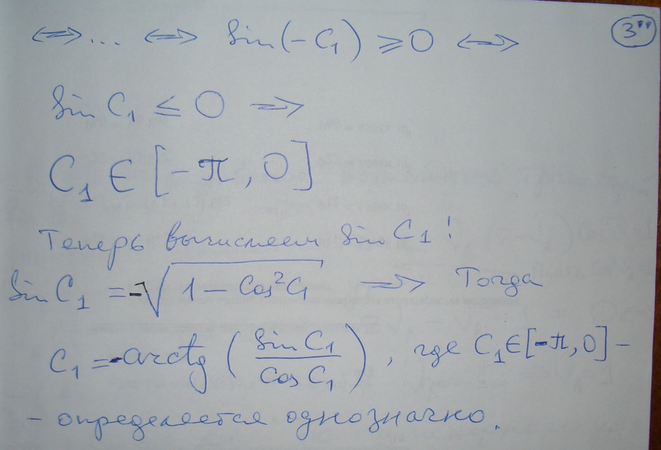 ⇔... ⇔ Sin(-C₁) ≥ 0 ⇔ 3''
Sin C₁ ≤ 0 ⇒
C₁ ∈ [-π, 0]
Теперь вычисляем Sin C₁!
Sin C₁ = -√(1 - Cos²C₁) ⇒ Тогда
C₁ = -arctg (Sin C₁ / Cos C₁), где C₁ ∈ [-π, 0] -
- определяется однозначно.